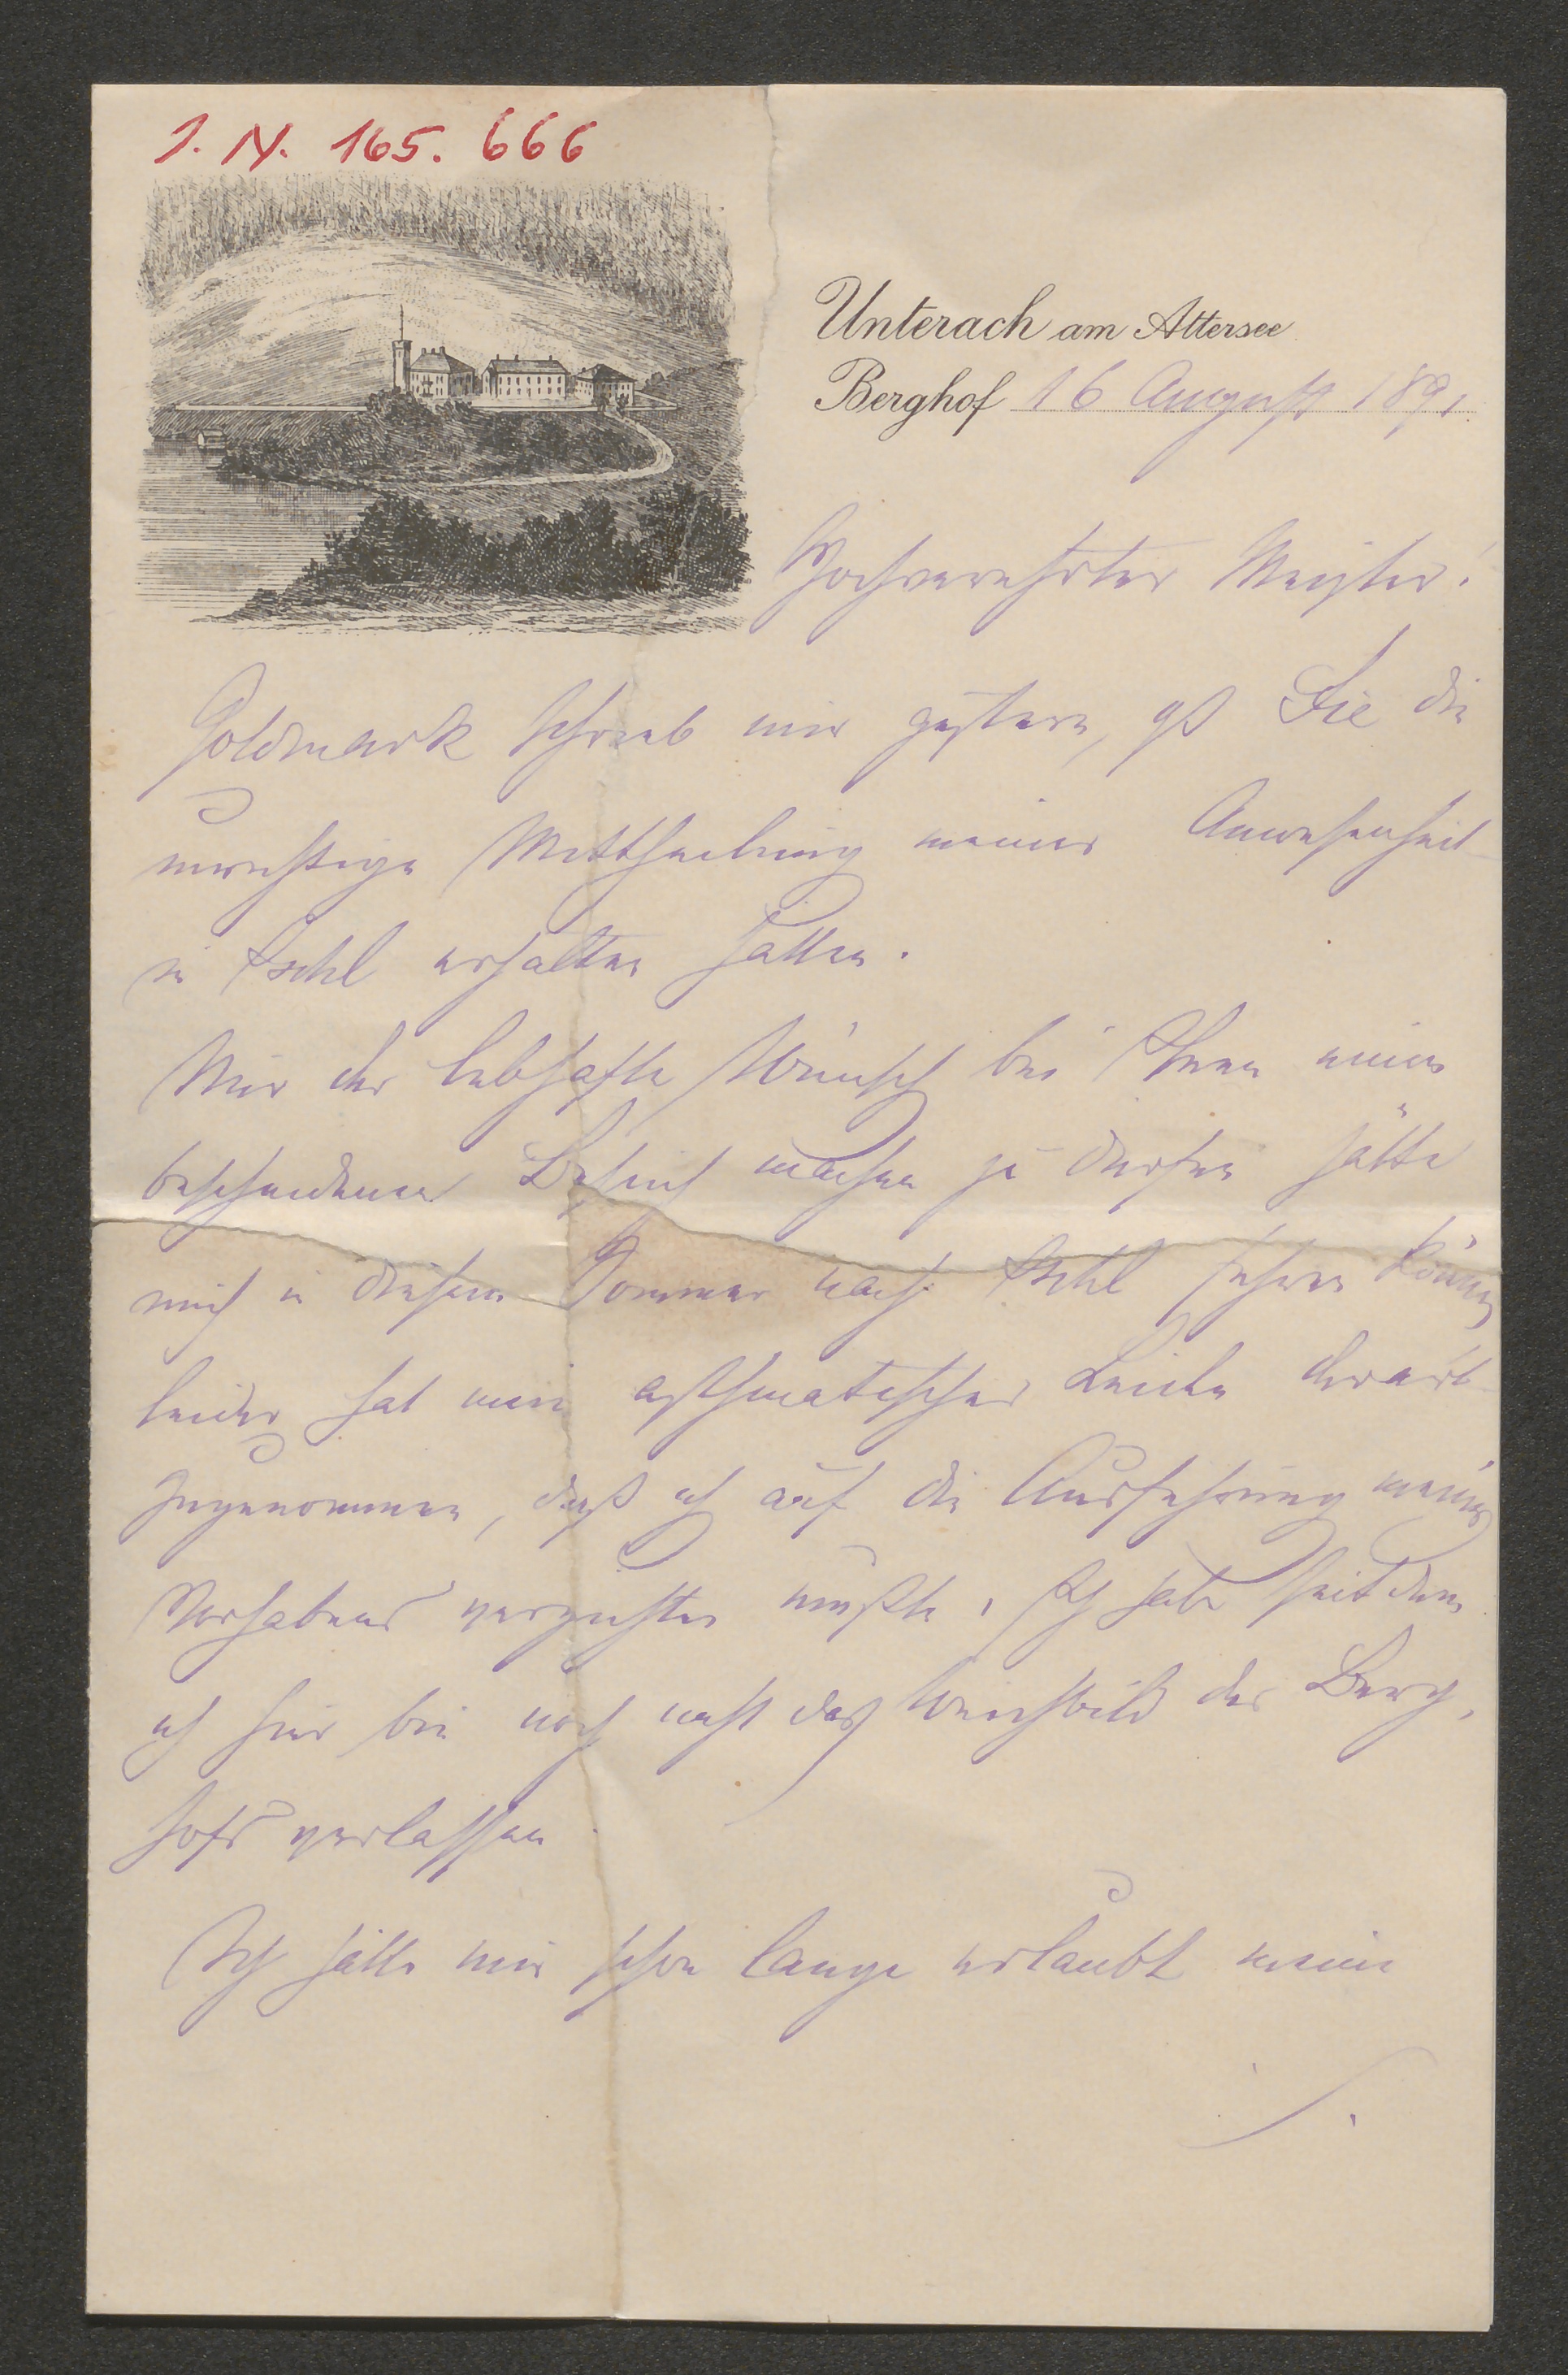 I. N. 165.666
Unterach am Attersee
Berghof 16 August 1891
Hochverehrter Meister!
Goldmark schrieb mir gestern, daß Sie die
unrichtige Mittheilung meiner Anwesenheit
in Ischl erhalten hätten.
Nur der lebhafte Wunsch bei Ihnen einen
bescheidenen Besuch machen zu dürfen hätte
mich in diesem Sommer nach Ischl führen können
leider hat mein asthmatisches Leiden derart
zugenommen, daß ich auf die Ausführung meines
Vorhabens verzichten mußte. Ich habe seitdem
ich hier bin noch nicht das Weichbild des Berg-
hofs verlassen
Ich hätte mir schon lange erlaubt meine